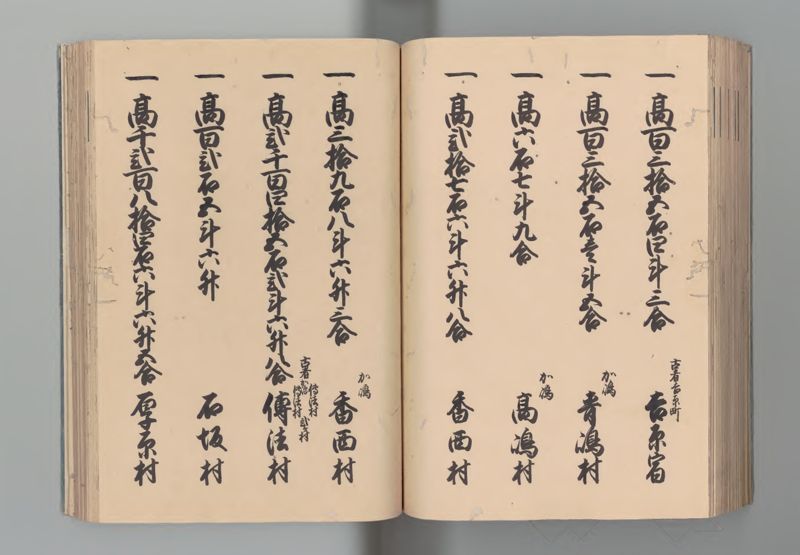 一高百三拾五石四斗三合
古者吉原町
吉原宿
一高百三拾五石壱斗五合
加嶋
青嶋村
一高六石七斗九合
加嶋
高嶋村
一高弐拾七石六斗六升八合
香西村
一高三拾九石八斗六升三合
加嶋
香西村
一高弐千百四拾五石弐斗六升八合
古者
傳法村
傳法村
弐村
傳法村
一高百弐石五斗六升
石坂村
一高千弐百八拾四石六斗六升五合
厚原村